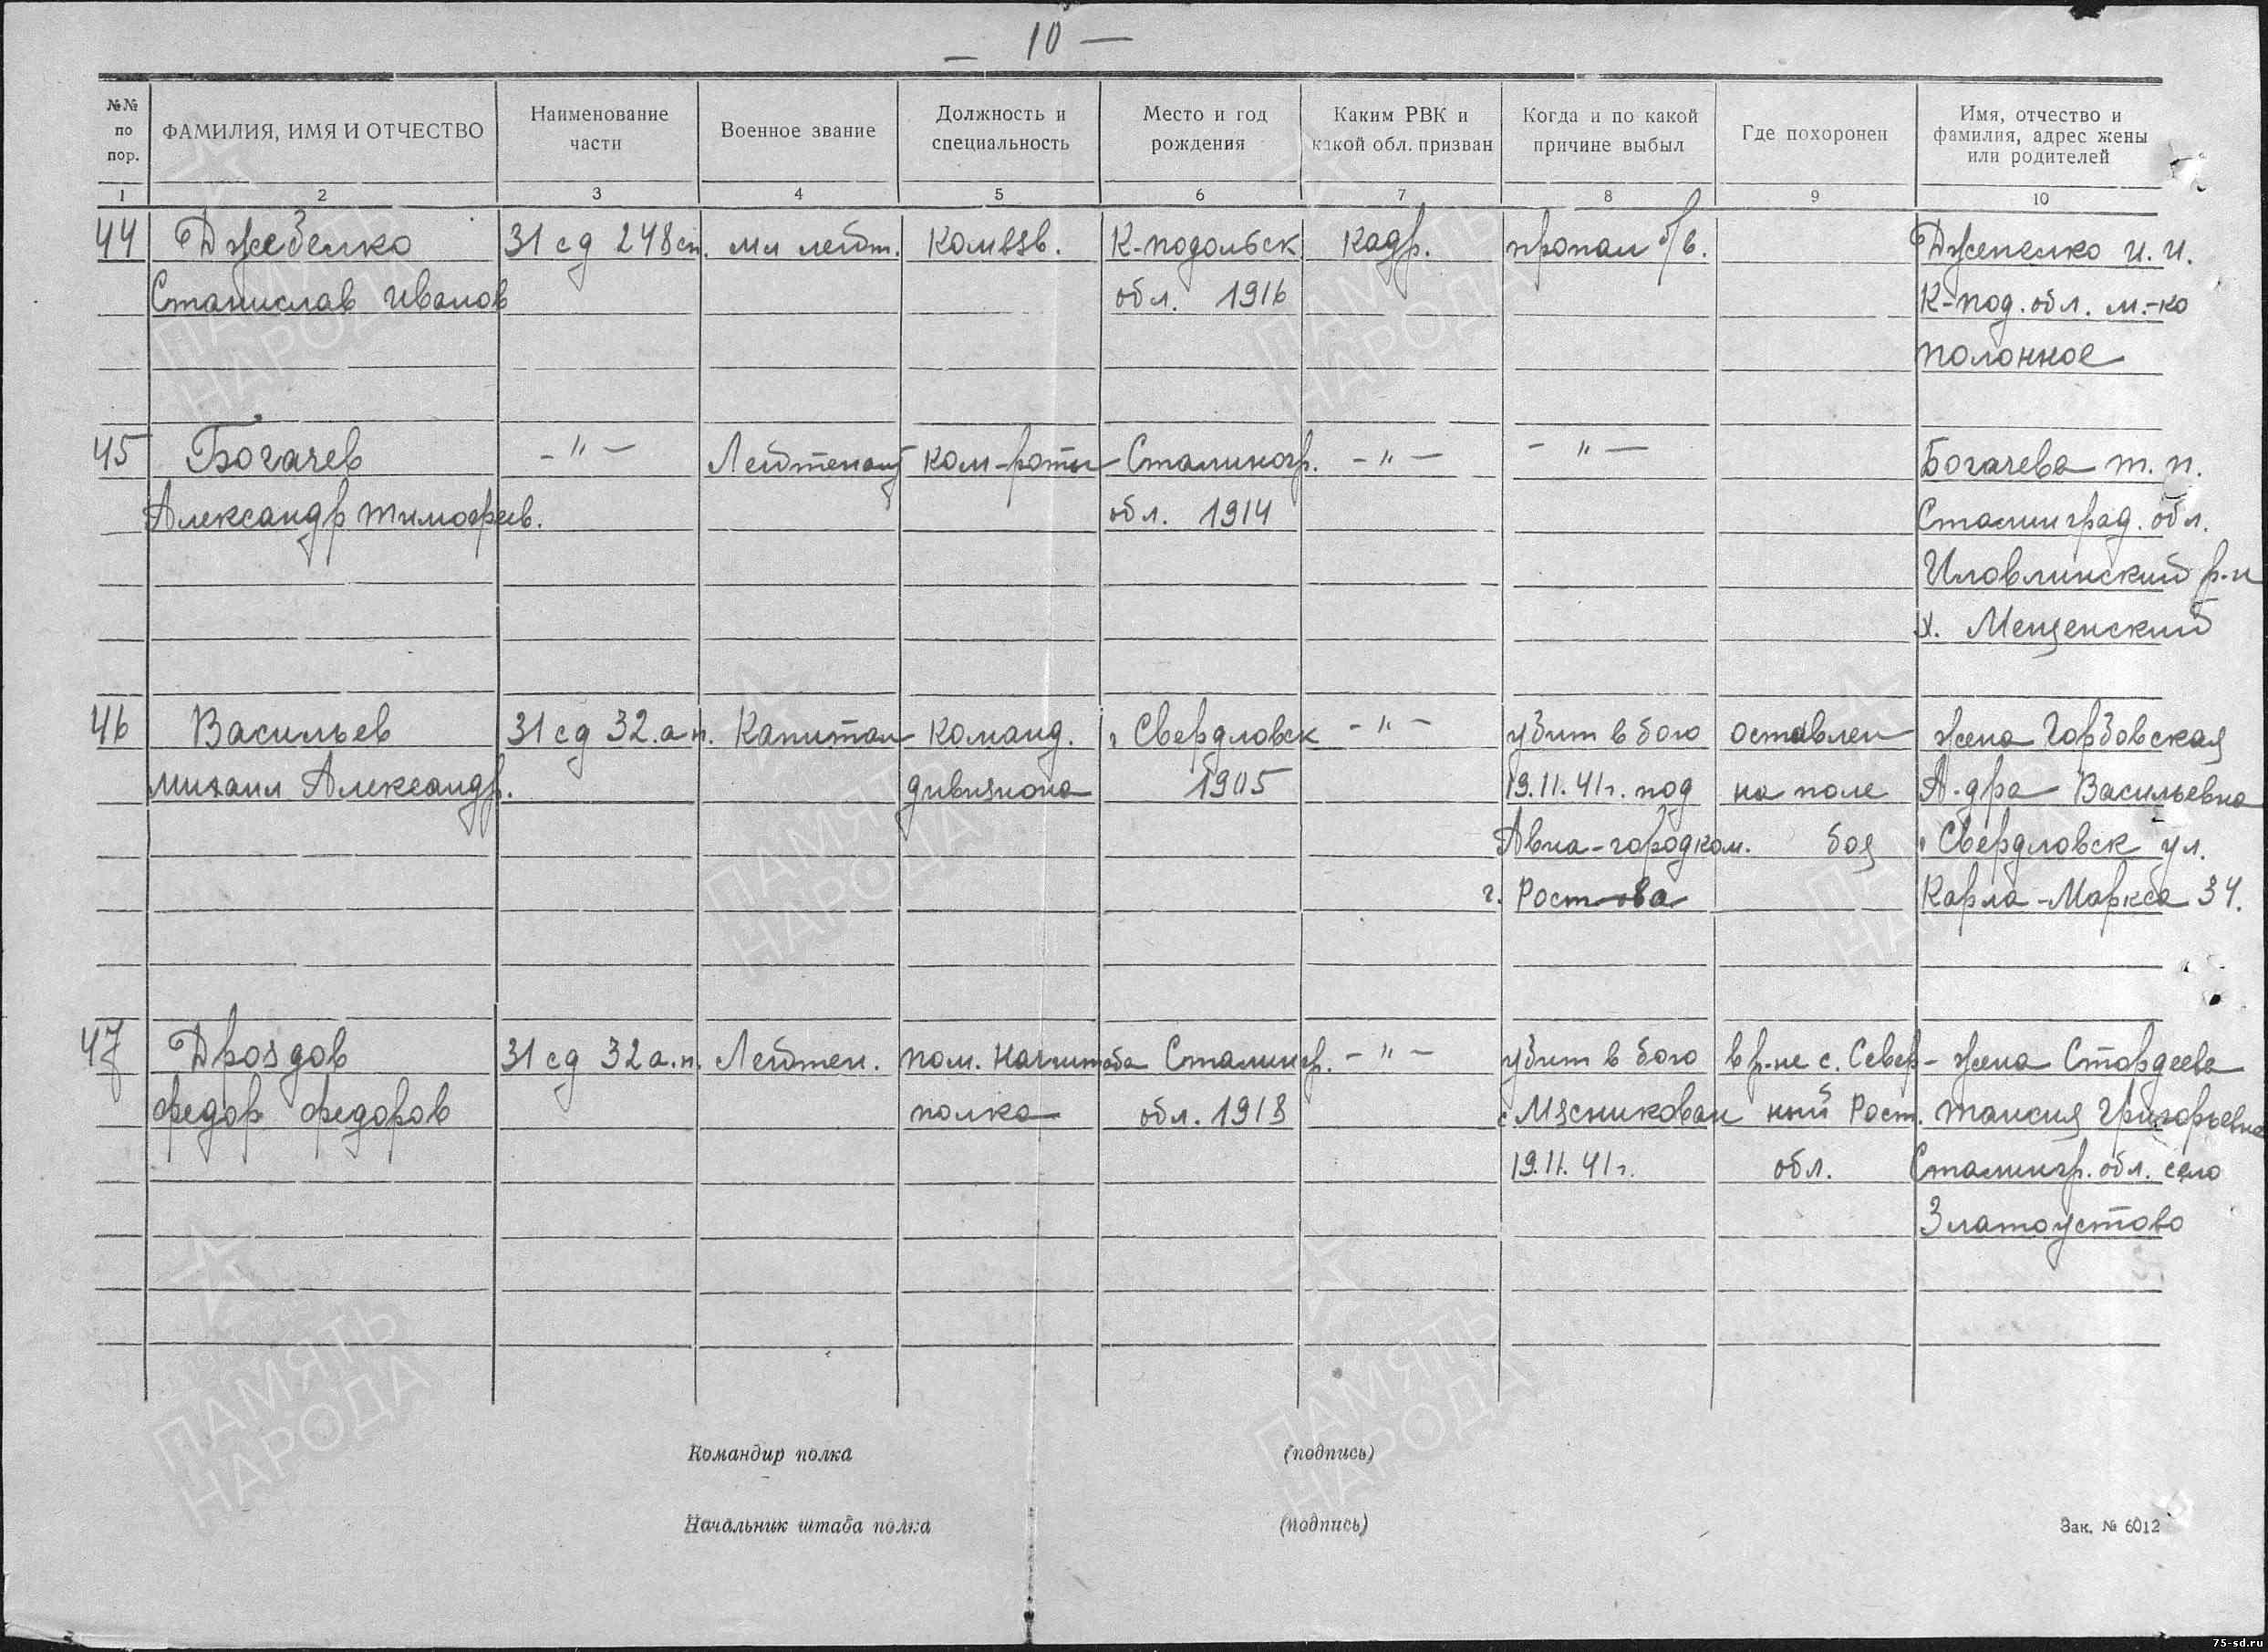 — 10 —
№№ по пор.
ФАМИЛИЯ, ИМЯ И ОТЧЕСТВО
Наименование части
Военное звание
Должность и специальность
Место и год рождения
Каким РВК и какой обл. призван
Когда и по какой причине выбыл
Где похоронен
Имя, отчество и фамилия, адрес жены или родителей
1 2 3 4 5 6 7 8 9 10
44 Джебелко 31 сд 248 сп. мл лейт. Комвзв. К-подольск Кадр. пропал б/в. Джепелко И. И.
Станислав Иванов обл. 1916 К-под. обл. м.-ко
Полонное
45 Богачев -"- Лейтенант ком-роты Сталиногр. -"- -"- Богачева Т. П.
Александр Тимофеев. обл. 1914 Сталинград. обл.
Иловлинский р-н
х. Мещенский
46 Васильев 31 сд 32.а п. Капитан Команд. г Свердловск -"- убит в бою оставлен жена Горбовская
Михаил Александр. дивизиона 1905 19.11.41г. под на поле А-дра Васильевна
Авиа-городком. боя г Свердловск ул.
г. Ростова Карла-Маркса 34.
47 Дроздов 31 сд 32 а.п. Лейтен. пом. начштаба Сталингр. -"- убит в бою в р-не с. Север- жена
Федор Федоров полка обл. 1913 с Мясникован ный Рост. Таисия Григорьевна
19.11.41г. обл. Сталингр. обл. село
Златоустово
Командир полка (подпись)
Начальник штаба полка (подпись)
Зак. № 6012
ПАМЯТЬ НАРОДА
75-sd.ru